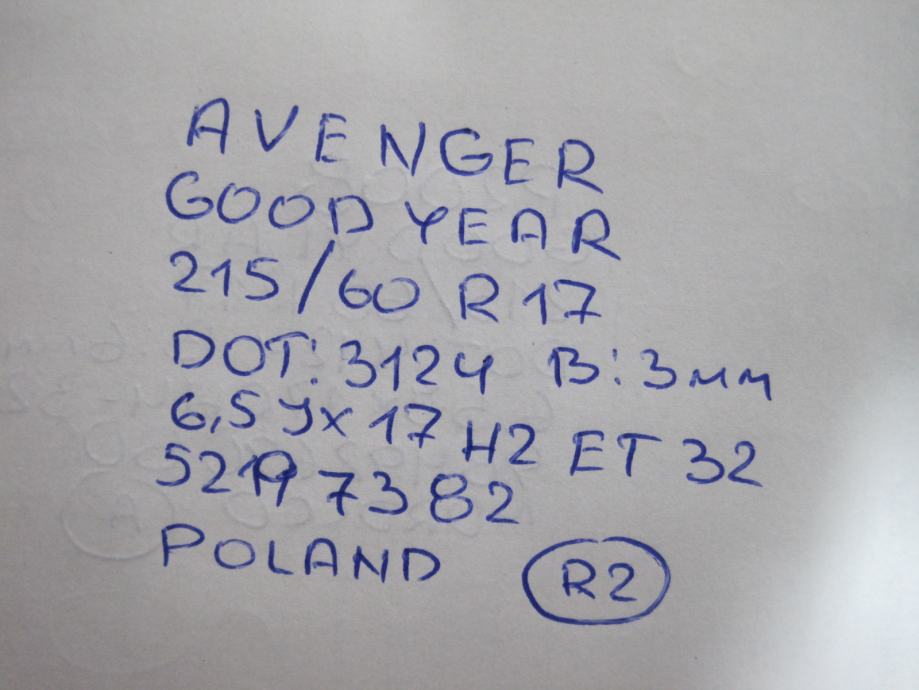 AVENGER
GOOD YEAR
215/60 R 17
DOT: 3124 B: 3мм
6,5 Jx 17 H2 ET 32
52197382
POLAND R2